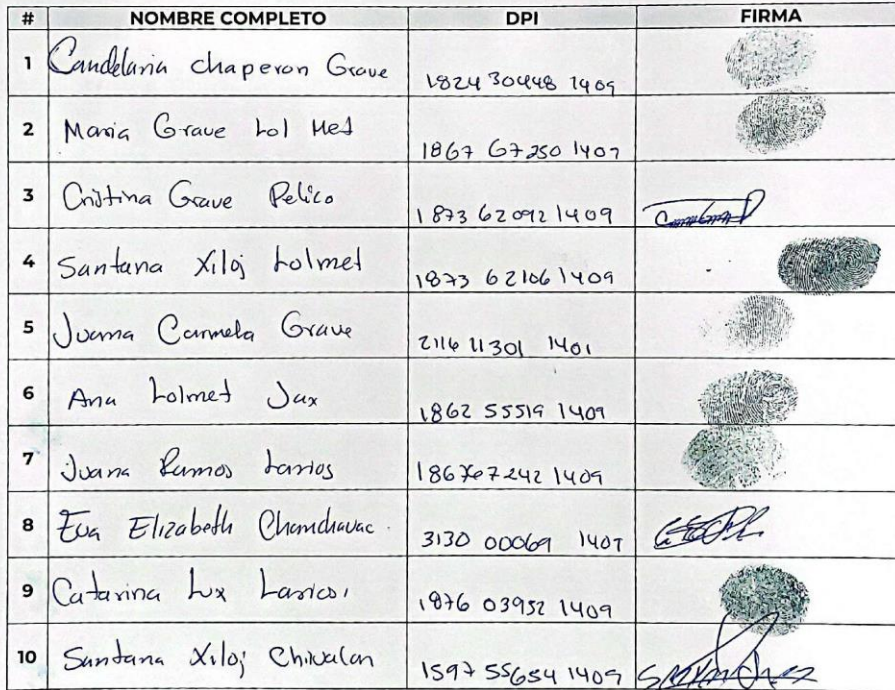 # NOMBRE COMPLETO DPI FIRMA
1 Candelaria chaperon Grave 1824 30448 1409
2 Maria Grave Lol Met 1867 67250 1409
3 Cristina Grave Pelico 1873 62092 1409
4 Santana Xiloj Lolmet 1873 62106 1409
5 Juana Carmela Grave 2116 11301 1401
6 Ana Lolmet Jax 1862 55519 1409
7 Juana Ramos Larios 1867 67242 1409
8 Eva Elizabeth Chanchavac 3130 00069 1407
9 Catarina Lux Larios 1876 03952 1409
10 Santana Xiloj Chivalan 1597 55654 1409